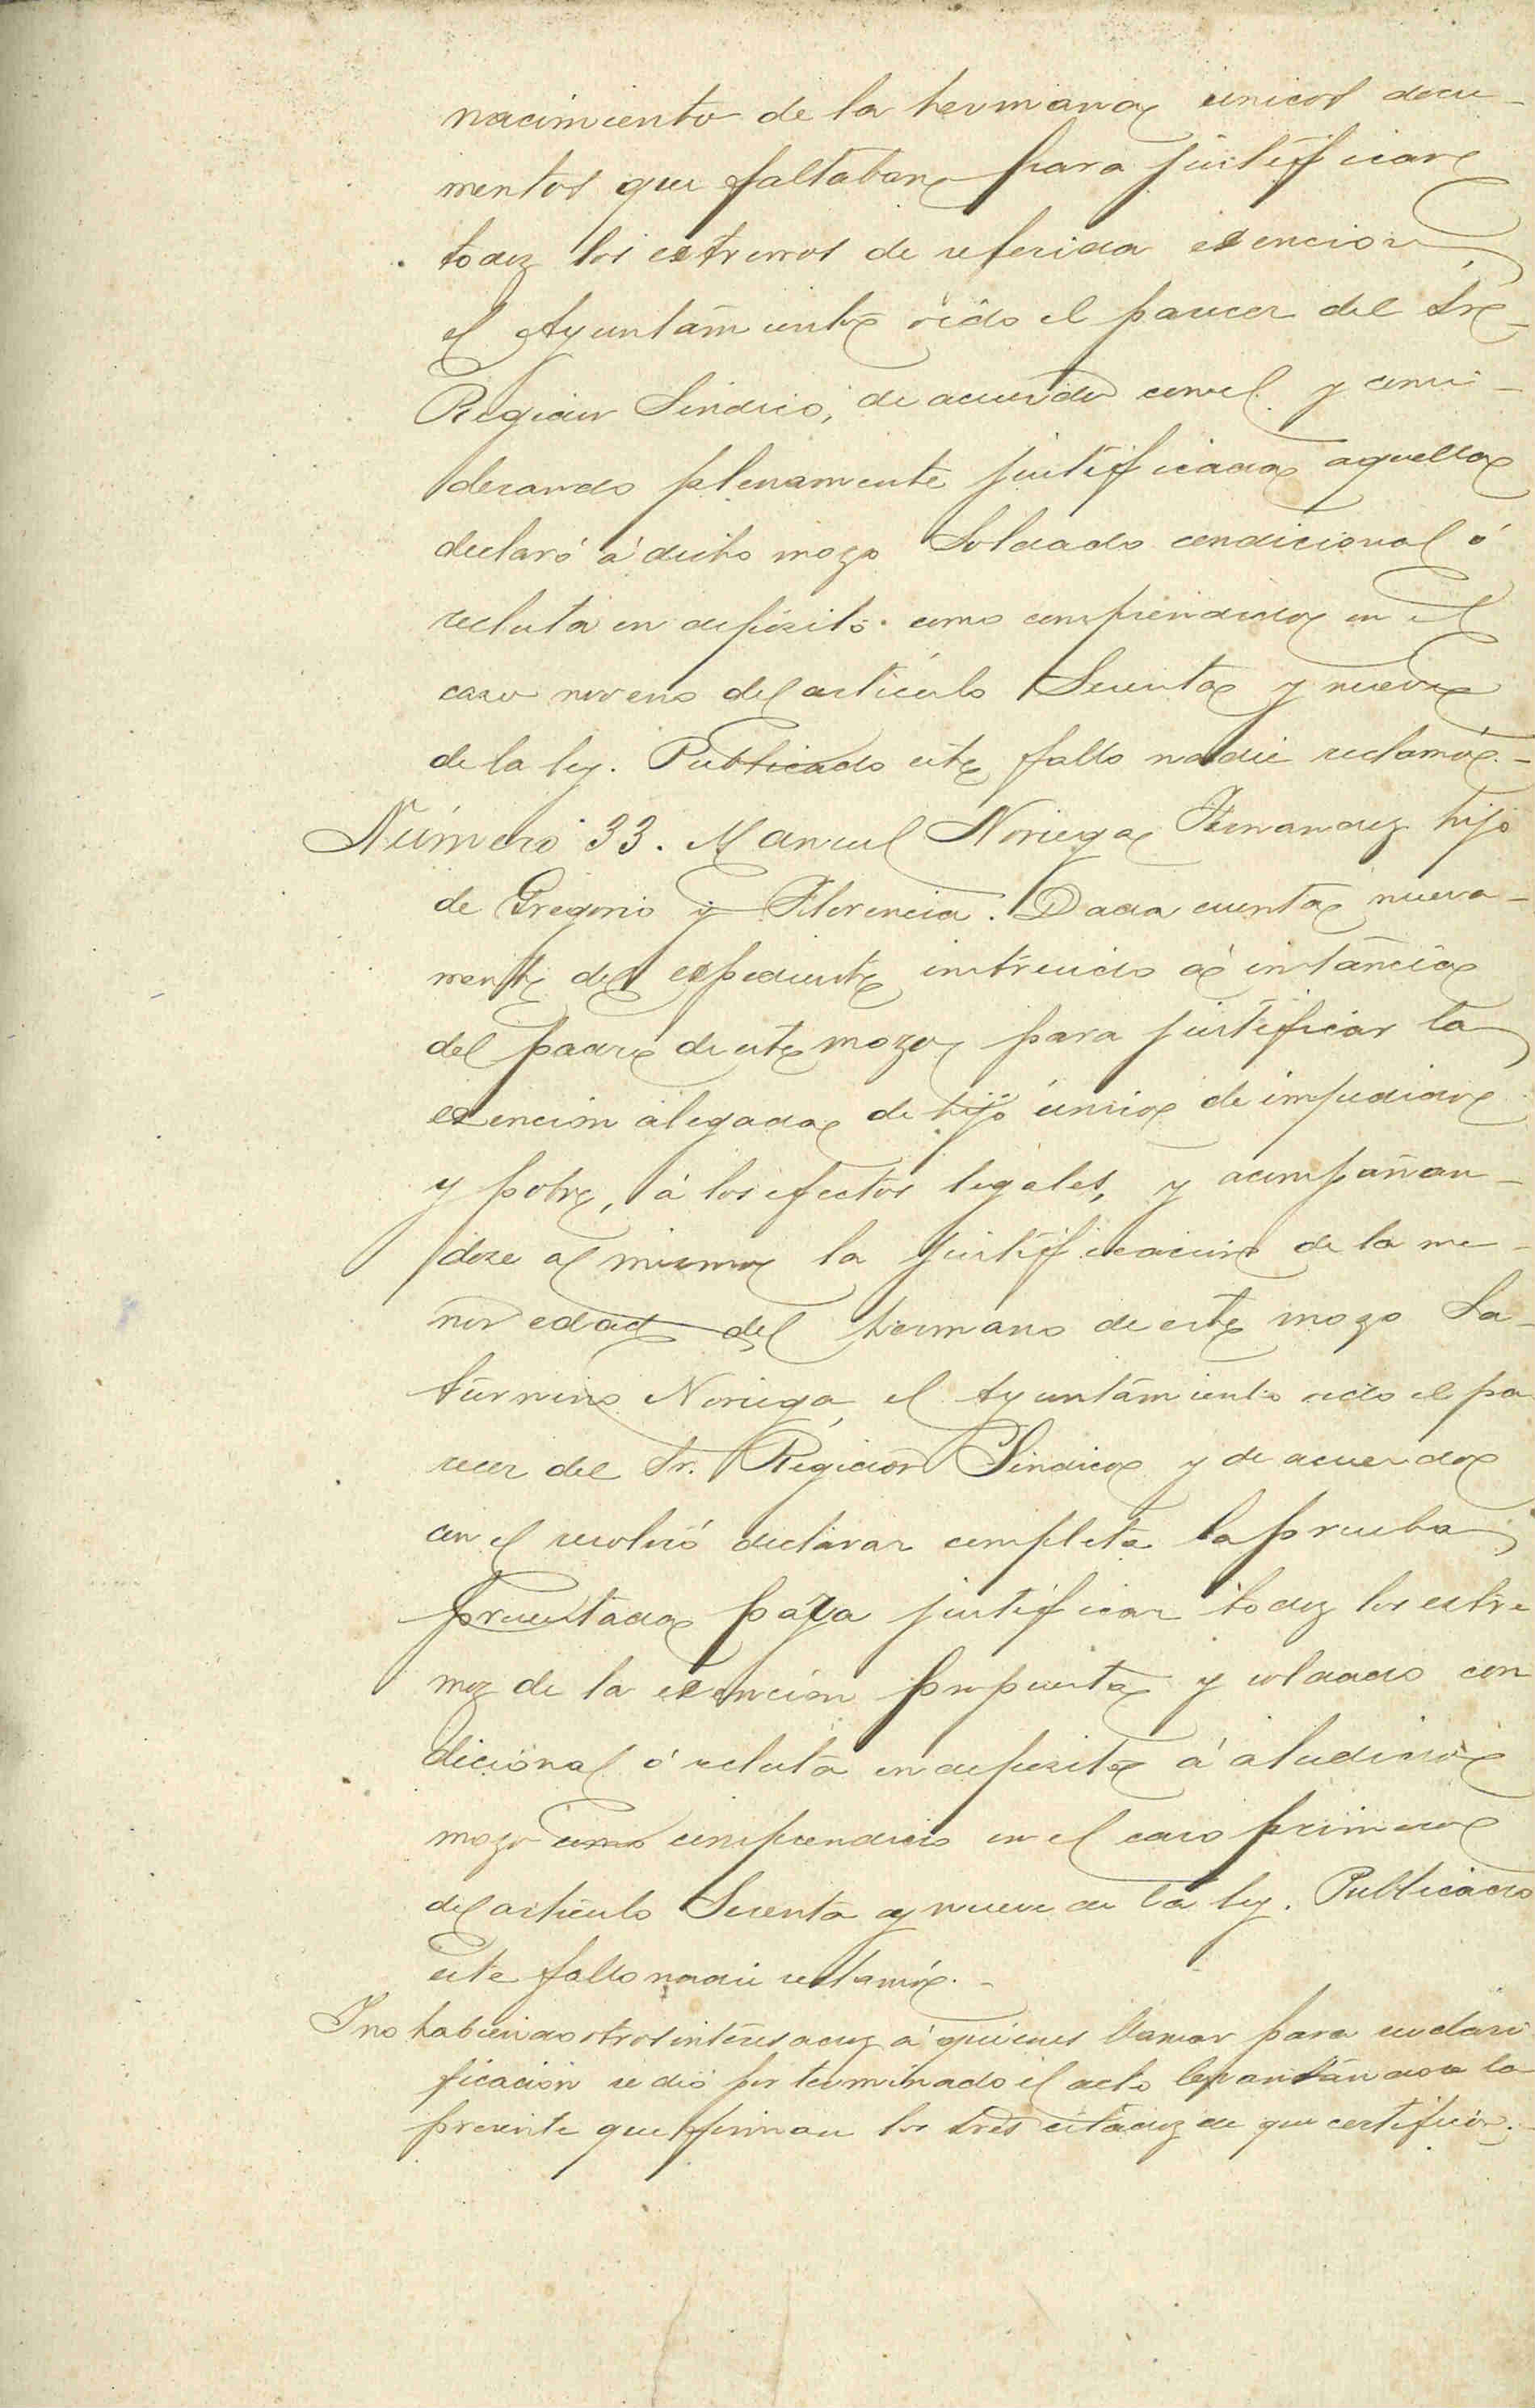 nacimiento de la hermana, unicos docu-
mentos que faltaban para justificar
todoz los extremos de referida exencion,
el Ayuntamiento oido el parecer del Sr.
Regidor Sindico, de acuerdo con el y consi-
derando plenamente justificada aquella
declaró á dicho mozo Soldado condicional ó
recluta en depósito como comprendido en el
caso noveno del artículo Sesenta y nueve
de la ley. Publicado este fallo nadie reclamó.-
Número 33. Manuel Noriega Fernandez hijo
de Gregorio y Florencia. Dada cuenta nueva-
mente del expediente instruido á instancia
del padre de este mozo para justificar la
exención alegada de hijo único de impedido
y pobre, á los efectos legales, y acompañan-
dose al mismo la justificacion de la me-
nor edad del hermano de este mozo Sa-
turnino Noriega, el Ayuntamiento oido el pa
recer del Sr. Regidor Sindico y de acuerdo
con el resolvió declarar completa la prueba
presentada para justificar todoz los estre
moz de la exención propuesta y soldado con
dicional ó recluta en deposito á aludido
mozo como comprendido en el caso primero
del artículo Sesenta y nueve de la ley. Publicado
este fallo nadie reclamó.-
Y no habiendo otros interesadoz á quienes llamar para su clasi
ficación se dió por terminado el acto levantándose la
presente que firman los Sres citadoz de que certifico.-